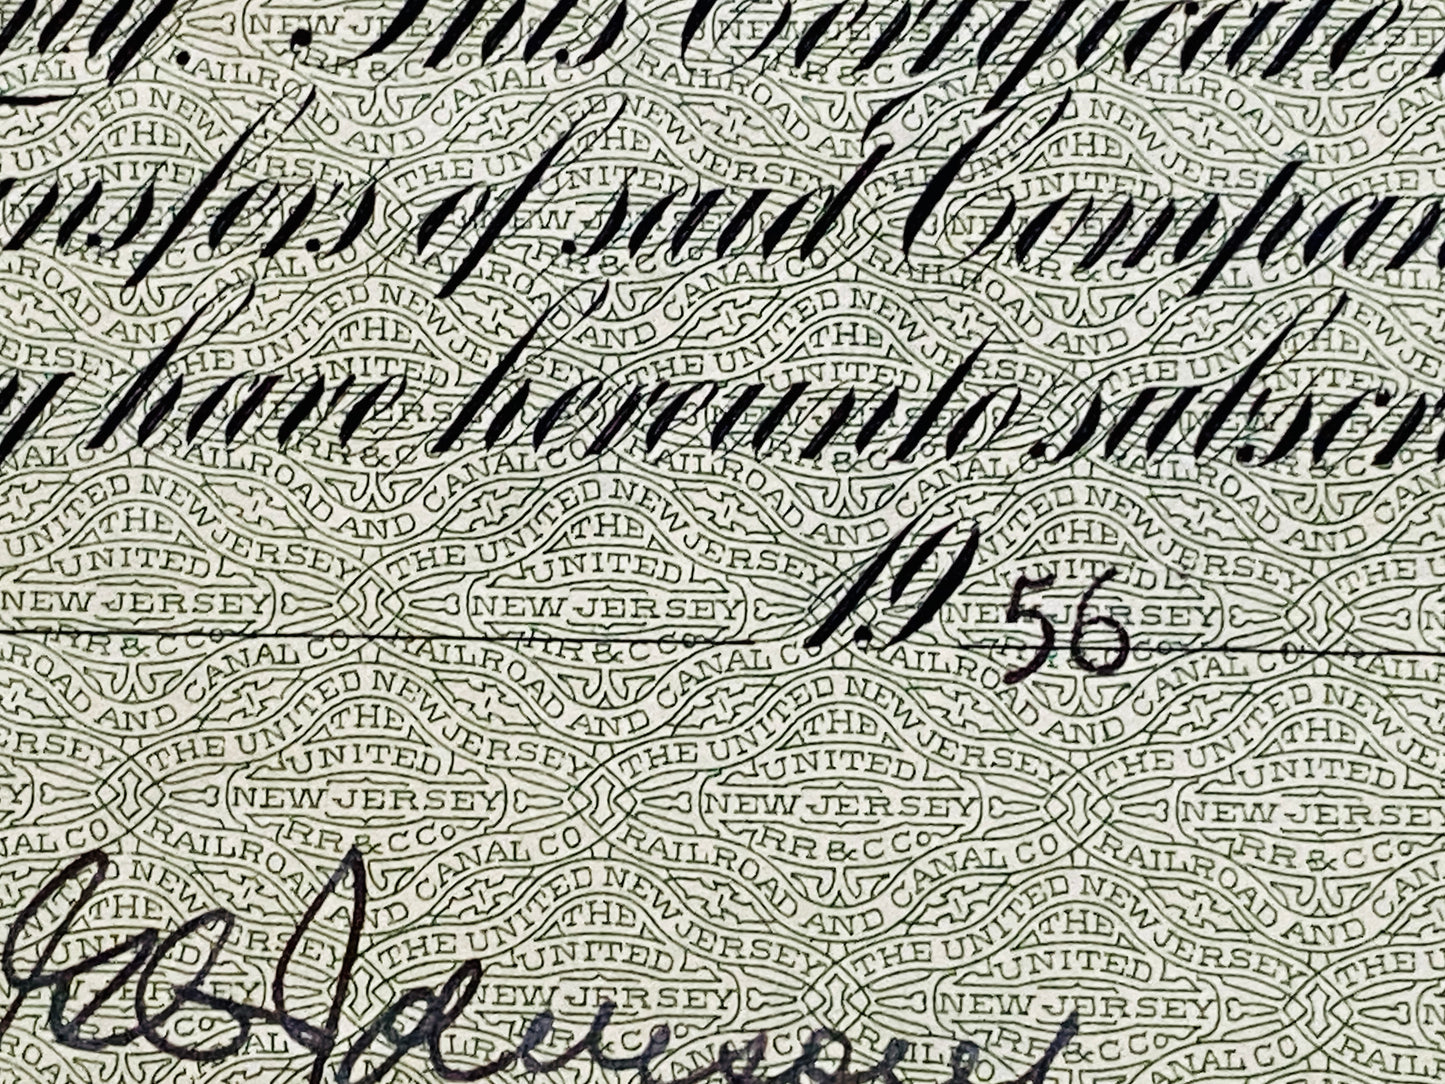 This Certificate
ansfers of said Compan
y have hereunto subscr
19 56
THE UNITED NEW JERSEY RAILROAD AND CANAL CO
THE
UNITED
NEW JERSEY
RR & C Co